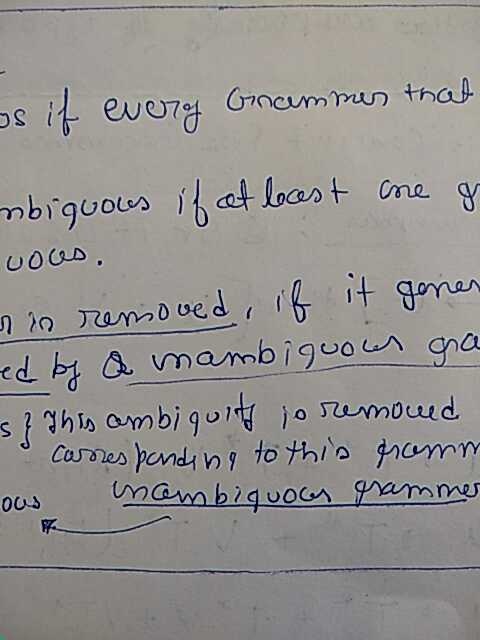 os if every Grammer that
mbiguous if at least one g
uous.
n is removed, if it gener
ed by a unambiguous gra
s } This ambiguity is removed
corresponding to this gramm
ous unambiguous grammer